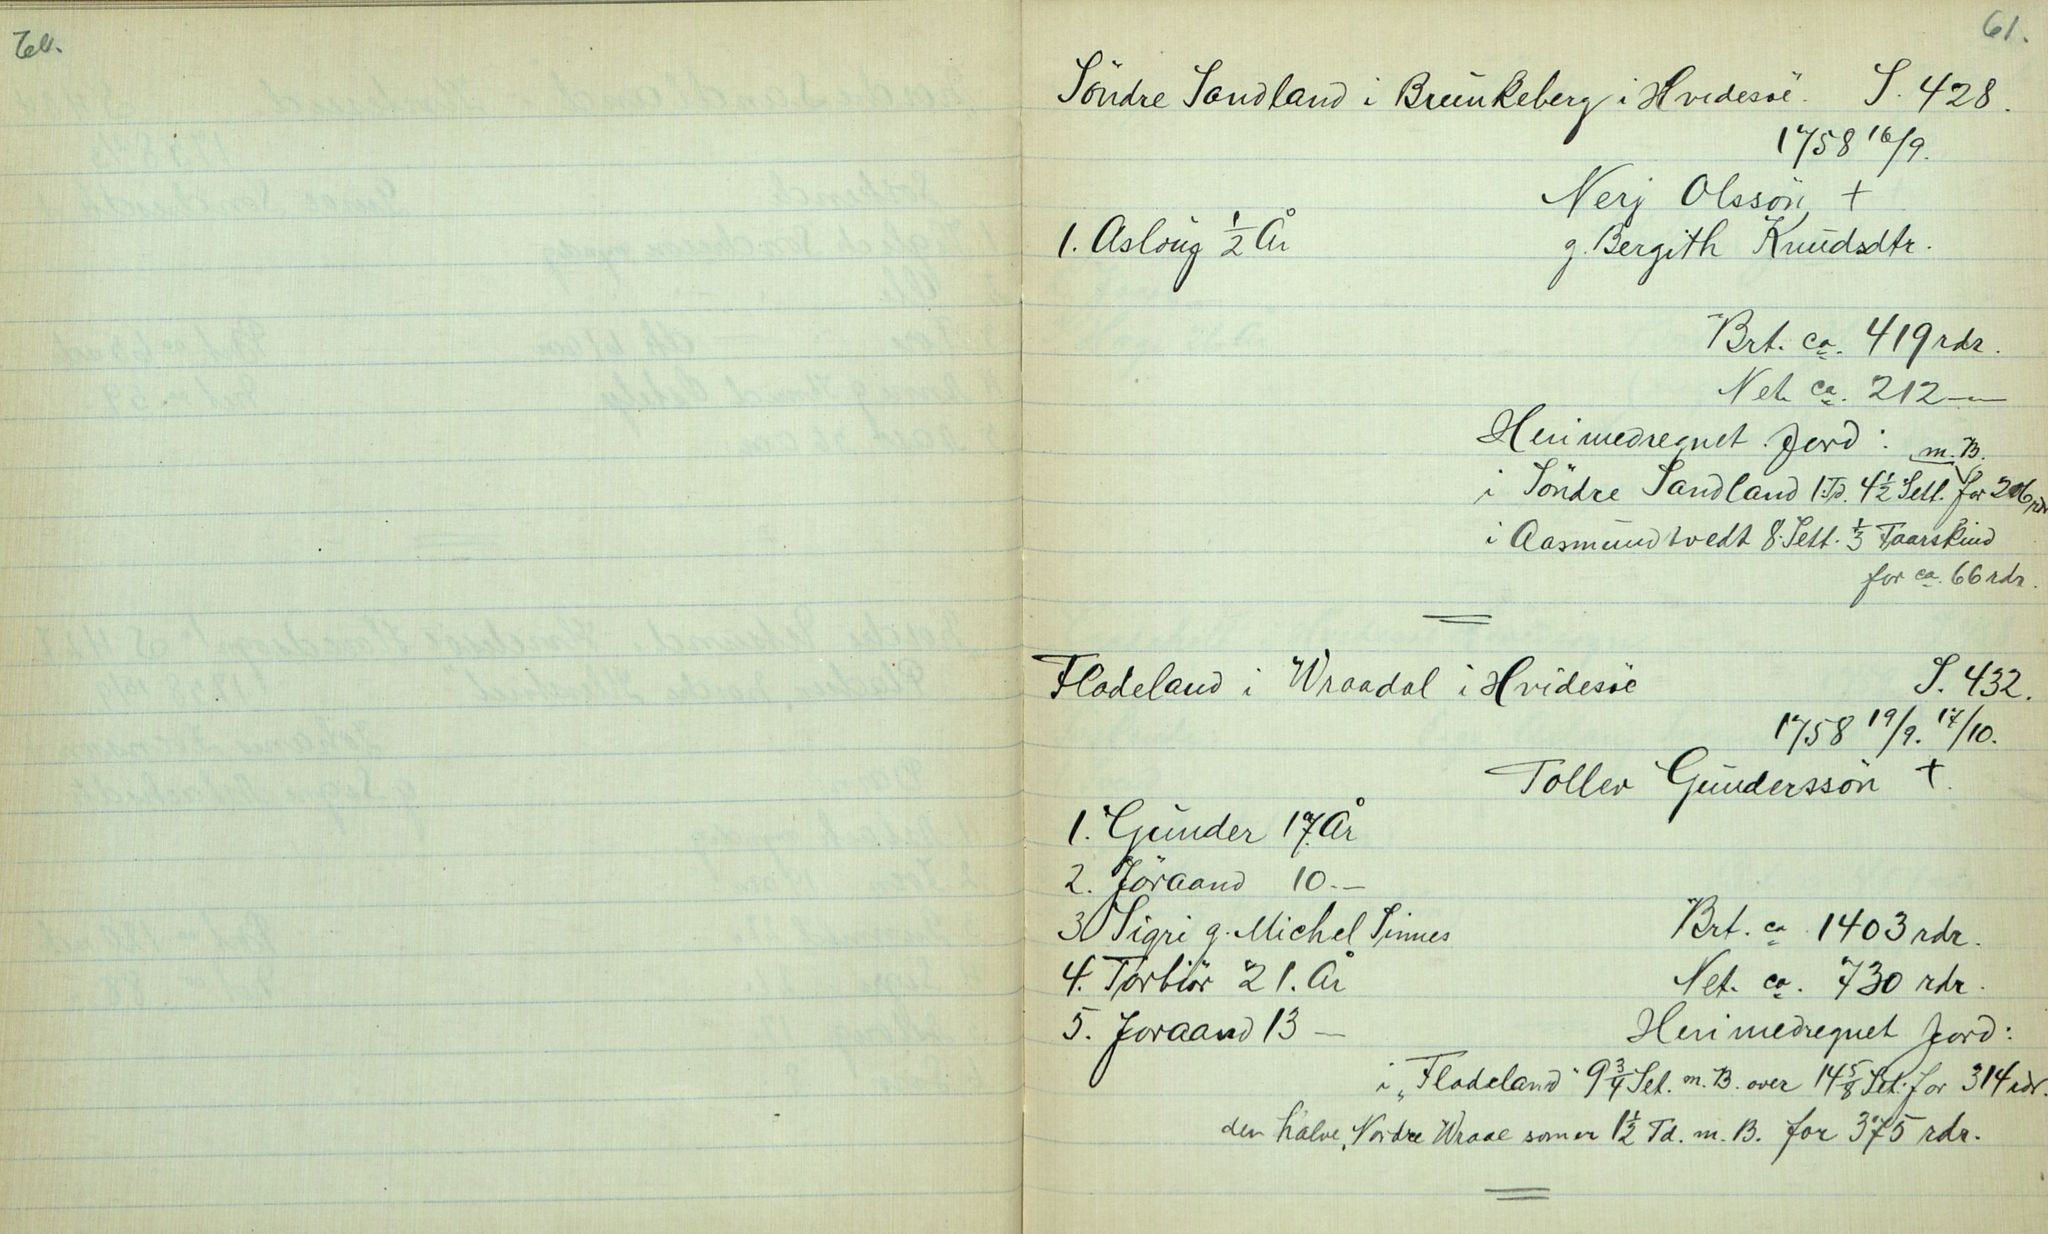 61.
Söndre Sandland i Brunkeberg i Hvidesöe. S. 428.
1758 16/9.
Nerj Olssön +
1. Aslöug ½ År g. Bergith Knudsdtr.
Brt. ca. 419 rdr.
Net. ca. 212 —
Heri medregnet Jord: m. B.
i Söndre Sandland 1 Td. 4½ Sett. for 206 rdr
i Aasmundtvedt 8 Sett. ⅓ Faarskind
for ca. 66 rdr.
Fladeland i Wraadal i Hvidesöe S. 432.
1758 19/9. 17/10.
Tollev Gunderssön +.
1. Gunder 17 År
2. Jöraand 10. —
3 Sigri g. Michel Sinnes Brt. ca. 1403 rdr.
4. Torbiör 21. År Net. ca. 730 rdr.
5. Joraand 13 — Heri medregnet Jord:
i „Fladeland“ 9¾ Set. m. B. over 14⅝ Set. for 314 rdr.
den halve Nordre Wraae som er 1½ Td. m. B. for 375 rdr.